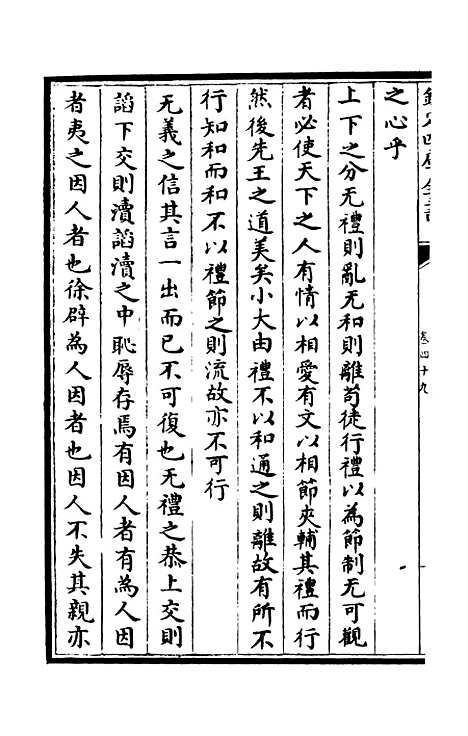 欽定四庫全書
卷四十九
之心乎
上下之分无禮則亂无和則離苟徒行禮以為節制无可觀
者必使天下之人有情以相愛有文以相節夾輔其禮而行
然後先王之道美矣小大由禮不以和通之則離故有所不
行知和而和不以禮節之則流故亦不可行
无義之信其言一出而已不可復也无禮之恭上交則
謟下交則瀆謟瀆之中恥辱存焉有因人者有為人因
者夷之因人者也徐辟為人因者也因人不失其親亦